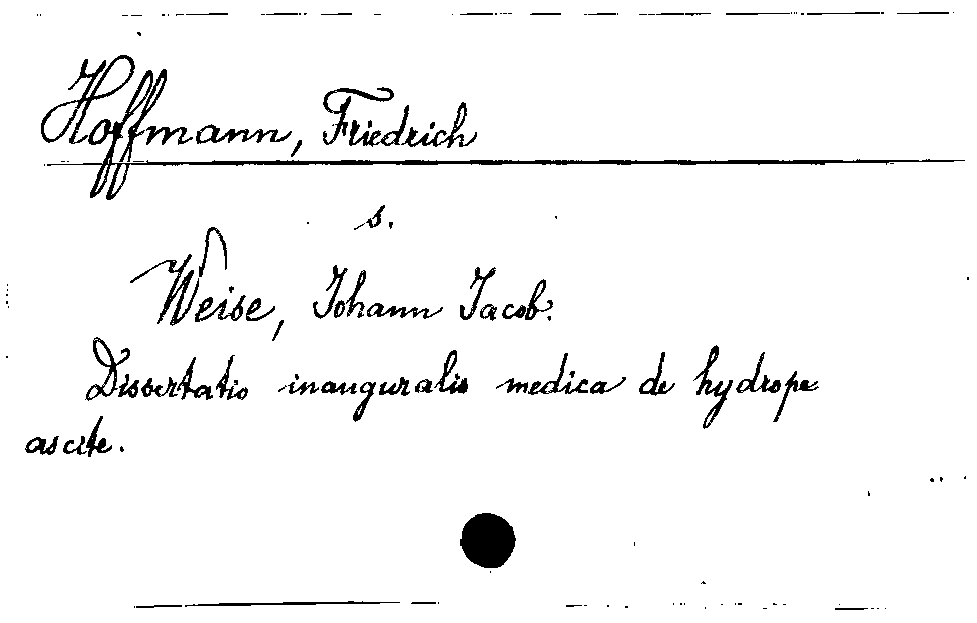 Hoffmann, Friedrich
s.
Weise, Johann Jacob.
Dissertatio inauguralis medica de hydrope
ascite.